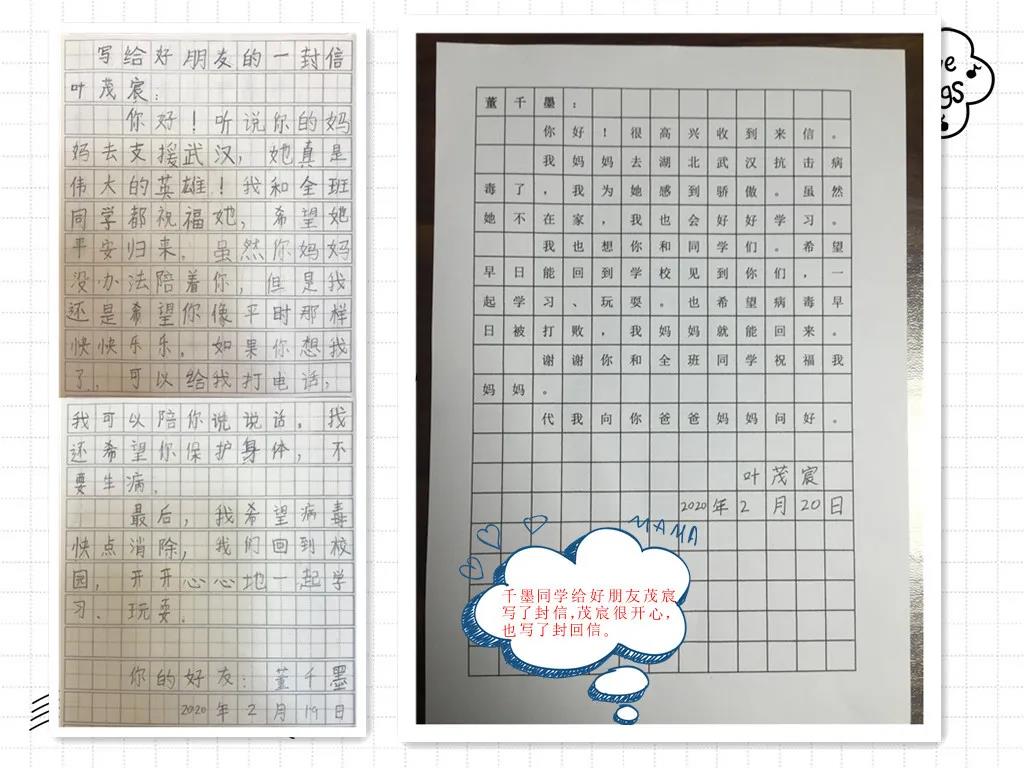 写给好朋友的一封信
叶茂宸：
你好！听说你的妈
妈去支援武汉，她真是
伟大的英雄！我和全班
同学都祝福她，希望她
平安归来。虽然你妈妈
没办法陪着你，但是我
还是希望你像平时那样
快快乐乐。如果你想我
了，可以给我打电话，
我可以陪你说说话。我
还希望你保护身体，不
要生病。
最后，我希望病毒
快点消除，我们回到校
园，开开心心地一起学
习、玩耍。
你的好友：董千墨
2020年2月19日
董千墨：
你好！很高兴收到来信。
我妈妈去湖北武汉抗击病
毒了，我为她感到骄傲。虽然
她不在家，我也会好好学习。
我也想你和同学们。希望
早日能回到学校见到你们，一
起学习、玩耍。也希望病毒早
日被打败，我妈妈就能回来。
谢谢你和全班同学祝福我
妈妈。
代我向你爸爸妈妈问好。
叶茂宸
2020年2月20日
MAMA
千墨同学给好朋友茂宸
写了封信,茂宸很开心，
也写了封回信。